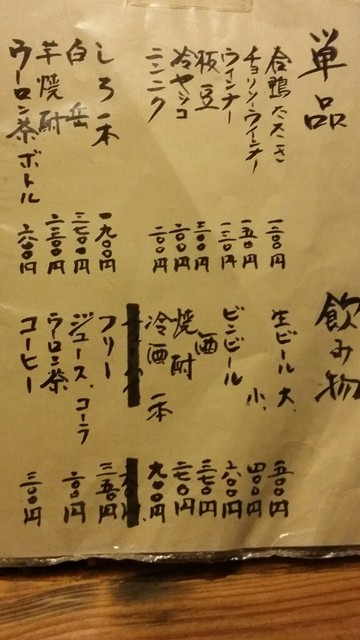 単品
合鴨たたき
チョリソーウインナー 一五〇円
ウインナー 一三〇円
枝豆 三〇〇円
冷ヤッコ 二〇〇円
ニンニク 二〇〇円
しろ一本 一九〇〇円
白岳 三七〇〇円
芋焼酎 二三〇〇円
ウーロン茶ボトル 六〇〇円
飲み物
生ビール 大 五〇〇円
小 四〇〇円
ビンビール 六〇〇円
酒 三七〇円
焼酎 二七〇円
冷酒一本 九〇〇円
フリー 三五〇円
ジュース、コーラ
ウーロン茶 二〇〇円
コーヒー 三〇〇円